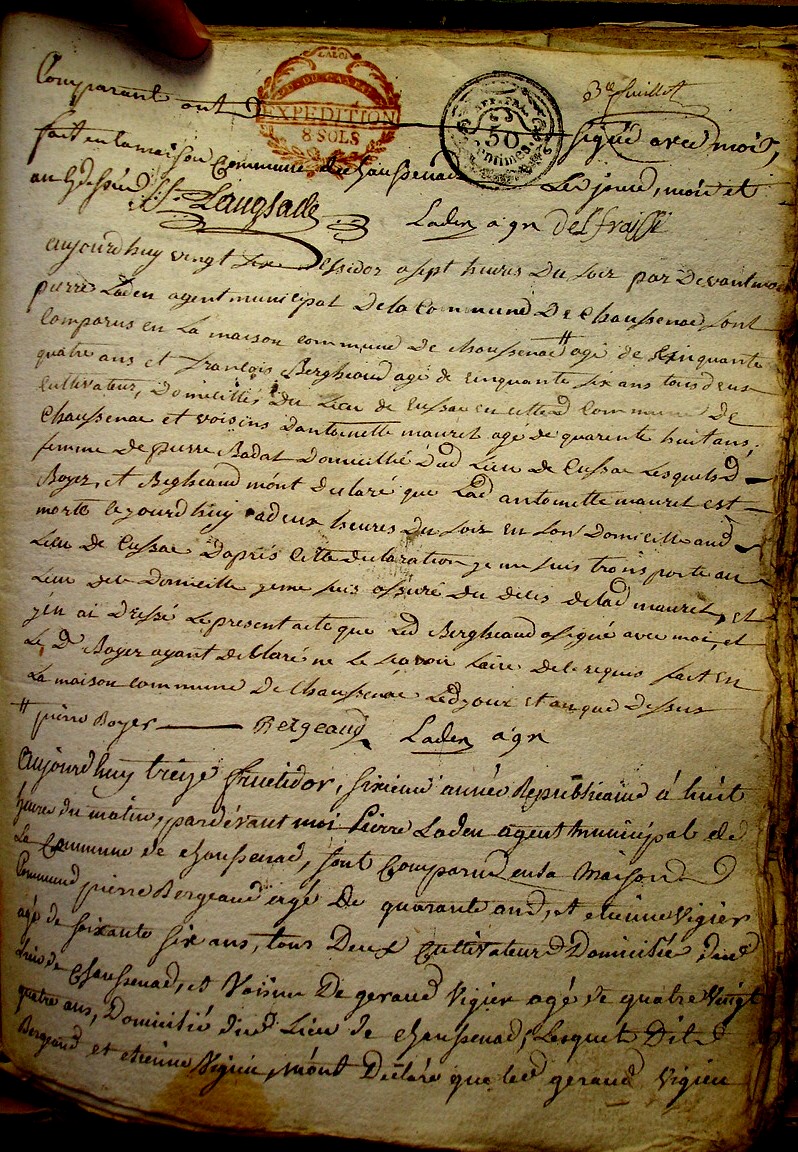 3e feuillet
Comparant ont signé avec moi,
DEP. DU CANTAL
EXPEDITION
8 SOLS
50
Centimes
fait en la maison Commune de chaussenac Les jour, mois et
an susdit
Langlade Laden agn delfraissi
aujourdhuy vingt six Messidor a sept heures Du soir par Devant moi
pierre Laden agent municipal De la Commune De Chaussenac sont
Comparus en La maison commune De chaussenac # agé de Cinquante
quatre ans et françois Bergheaud agé de cinquante six ans tous deux
Cultivateur, Domiciliés Du Lieu de Cussac en cette d Commune De
Chaussenac et voisins Dantoinette mauret agé de quarente huit ans,
femme De pierre Badat Domicilié dud Lieu de Cussac Lesquels d
Boyer, et Bergheaud m'ont declaré que Lad antoinette mauret est
morte cejourdhuy a deux heures Du soir En son Domicille aud
Lieu De Cussac Daprés Cette declaration je me suis transporté au
Lieu de ce Domicille jeme suis assuré Du déces de lad mauret, et
j'en ai Dressé Le present acte que Led Bergheaud a signé avec moi, et
Le D Boyer ayant declaré ne Le scavoir faire de ce requis fait En
La maison commune De Chaussenac Led jour et an que Dessus
# pierre Boyer Bergeaud Laden agn
aujourdhuy treize fructidor, sixieme année Republicaine á huit
heures du matin, pardévant moi Pierre Laden agent municipal de
La Commune de chaussenac, sont Comparus en la Maison
Commune pierre Bergeaud agé De quarante ans, et etienne Vigier
agé de soixante six ans, tous Deux Cultivateurs Domiciliés dud
Lieu de Chaussenac, et Voisins De geraud Vigier agé de quatre Vingt
quatre ans, Domicilié dud Lieu de chaussenac, Lesquels Dits
Bergeaud et etienne Vigier, m'ont Déclaré que led geraud Vigier